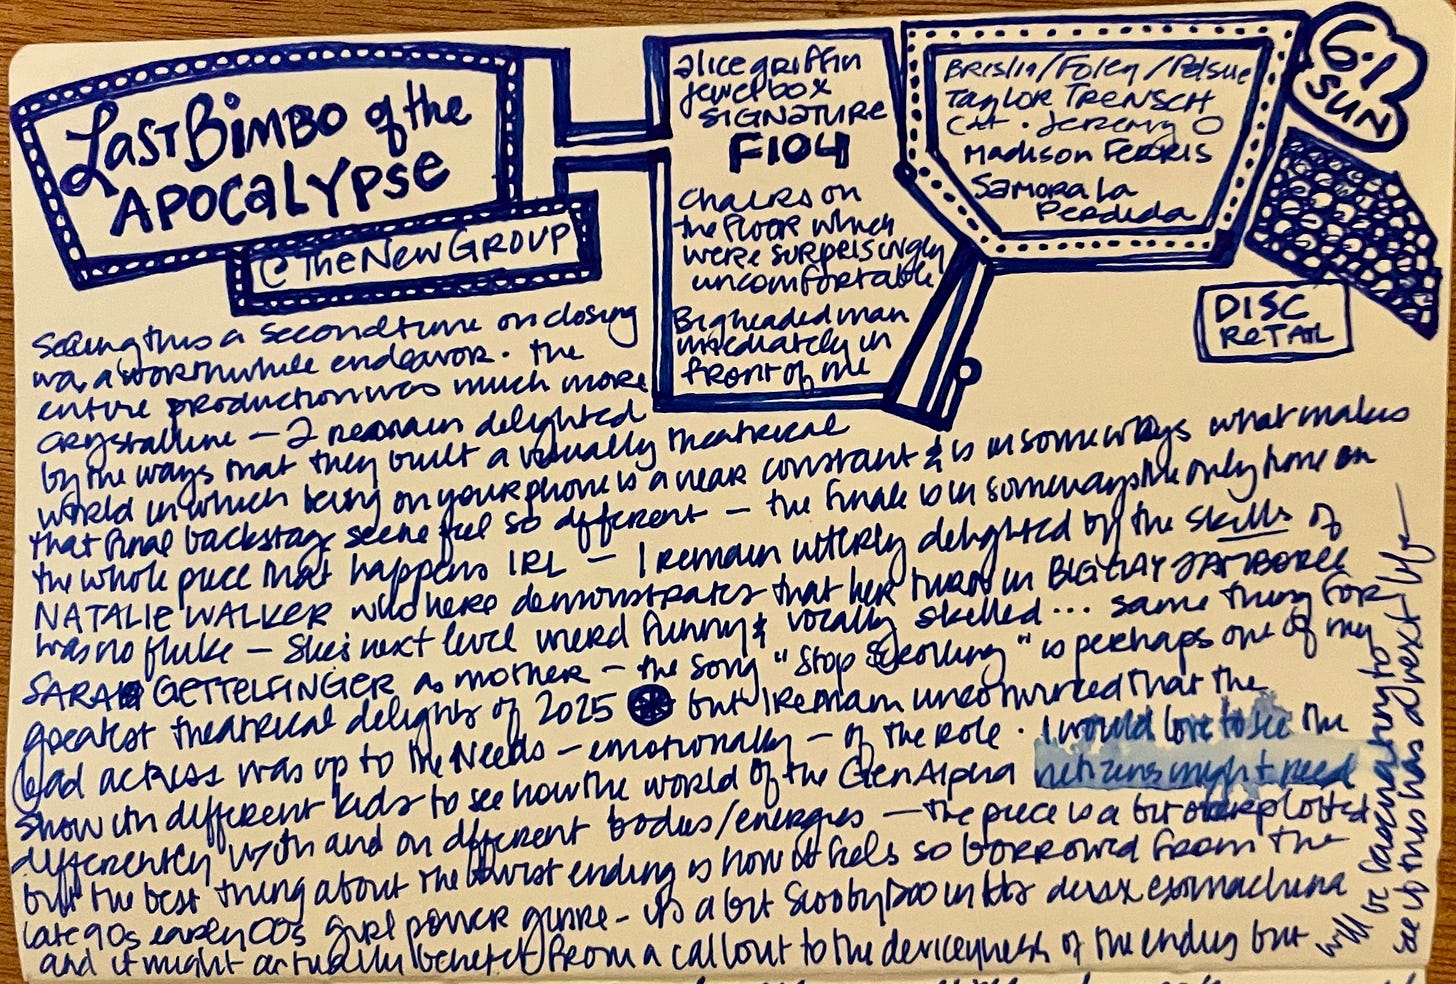 Last Bimbo of the
Apocalypse
@ The New Group
alice griffin
jewelbox
SIGNATURE
F104
chairs on
the floor which
were surprisingly
uncomfortable
Big headed man
immediately in
front of me
Breslin/Foley/Pelsue
Taylor Trensch
Cat. Jeremy O
Madison Ferris
Samora la
Perdida
6.1
SUN
DISC
RETAIL
Seeing this a second time on closing
was a worthwhile endeavor. The
entire production was much more
crystalline — I remain delighted
by the ways that they built a visually theatrical
world in which being on your phone is a near constant & is in some ways what makes
that final backstage scene feel so different — the finale is in some ways the only time in
the whole piece that happens IRL — I remain utterly delighted by the skills of
NATALIE WALKER who here demonstrates that her turn in BIG GAY JAMBOREE
was no fluke — She's next level weird funny & vocally skilled... same thing for
SARAH GETTELFINGER as mother — the song "Stop Scrolling" is perhaps one of my
greatest theatrical delights of 2025 but I remain unconvinced that the
lead actress was up to the needs — emotionally — of the role. I would love to see the
show w diff different kids to see how the world of the Gen Alpha netizens might read
differently with and on different bodies/energies — the piece is a bit overplotted
but the best thing about the twist ending is how it feels so borrowed from the
late 90s early 00s girl power genre — its a bit Scooby Doo in its deux ex machina
and it might actually benefit from a callout to the deviceyness of the ending but
will be fascinating to
see if this has a next life —